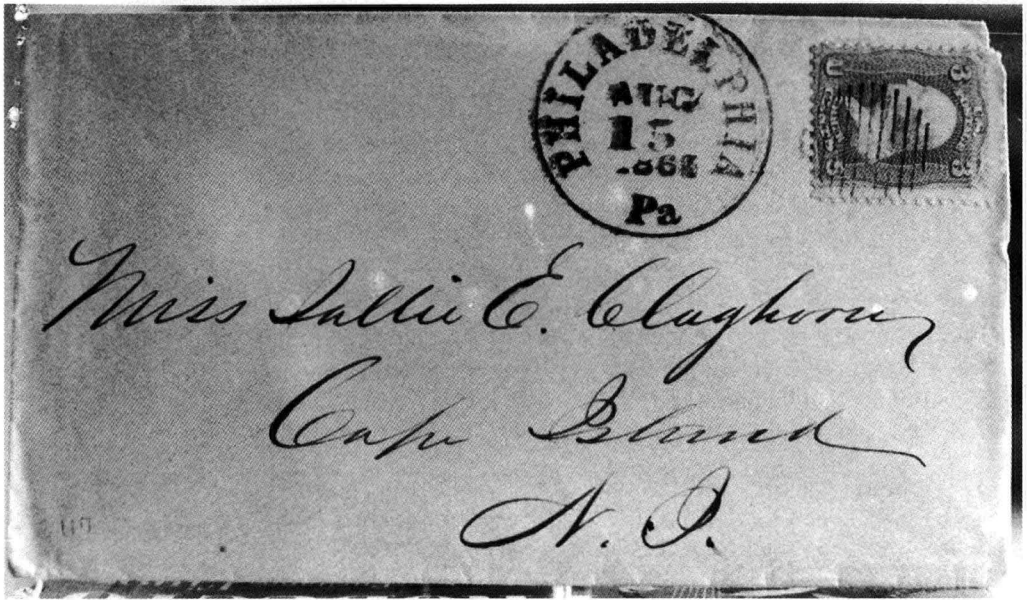 PHILADELPHIA
AUG
15
Pa
U 3
Miss Sallie E. Claghorn
Cape Island
N. J.
117